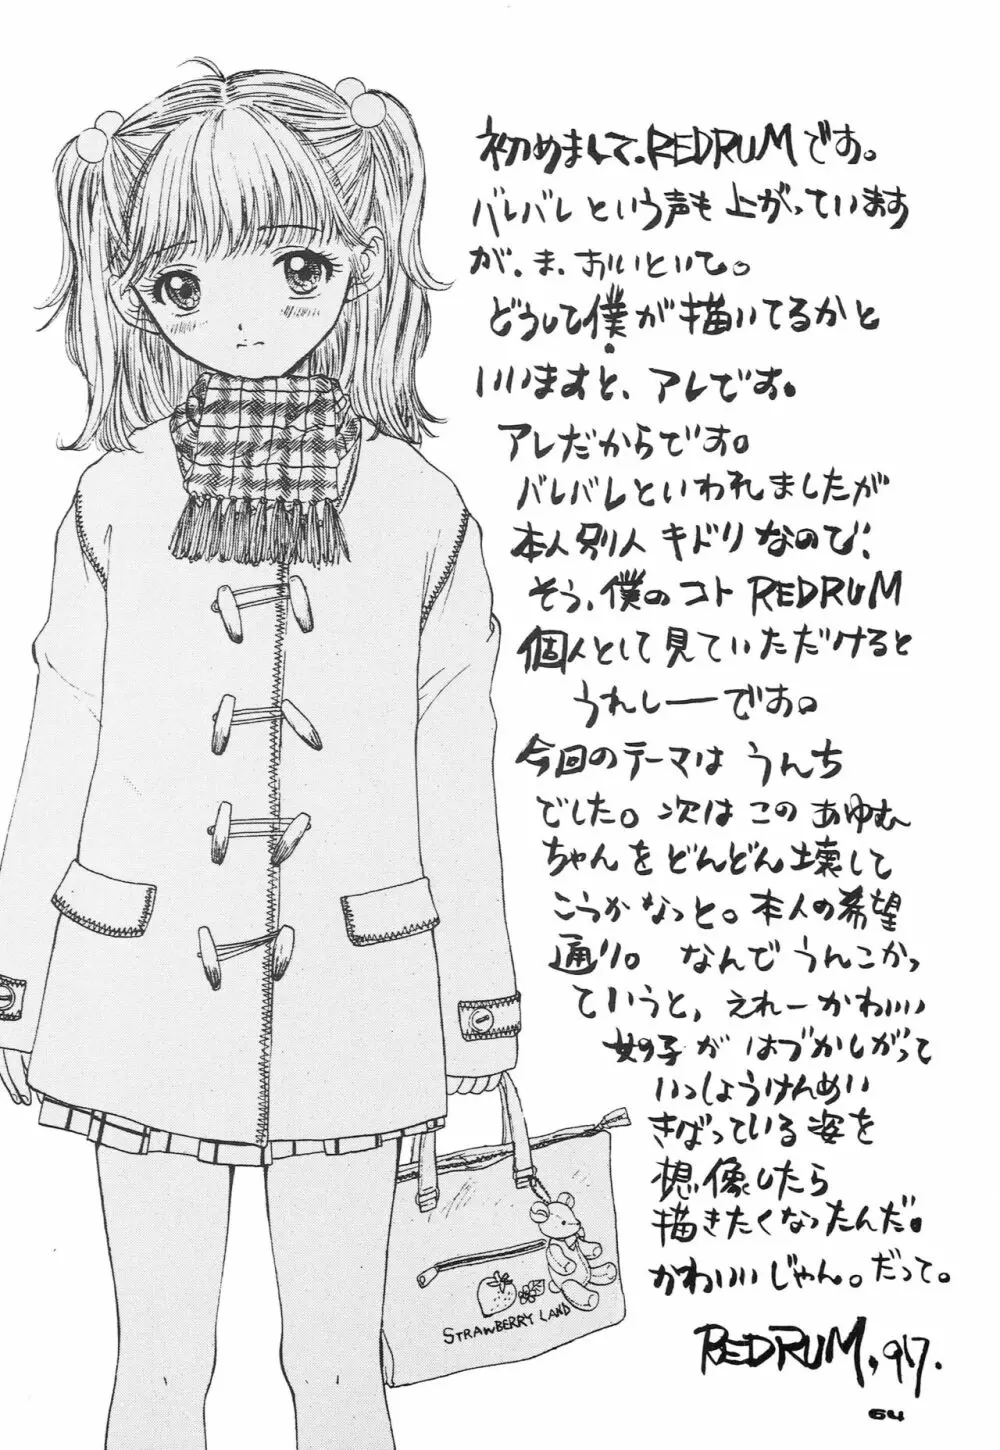 初めまして、REDRUMです。
バレバレという声も上がっています
が、ま、おいといて。
どうして僕が描いてるかと
いいますと、アレです。
アレだからです。
バレバレといわれましたが
本人別人キドリなので、
そう、僕のコトREDRUM
個人として見ていただけると
うれしーです。
今回のテーマはうんち
でした。次はこのあゆむ
ちゃんをどんどん壊して
こうかなっと。本人の希望
通り。なんでうんこかっ
ていうと、えれーかわいい
女の子がはづかしがって
いっしょうけんめい
きばっている姿を
想像したら
描きたくなったんだ。
かわいいじゃん。だって。
REDRUM, 97.
STRAWBERRY LAND
64